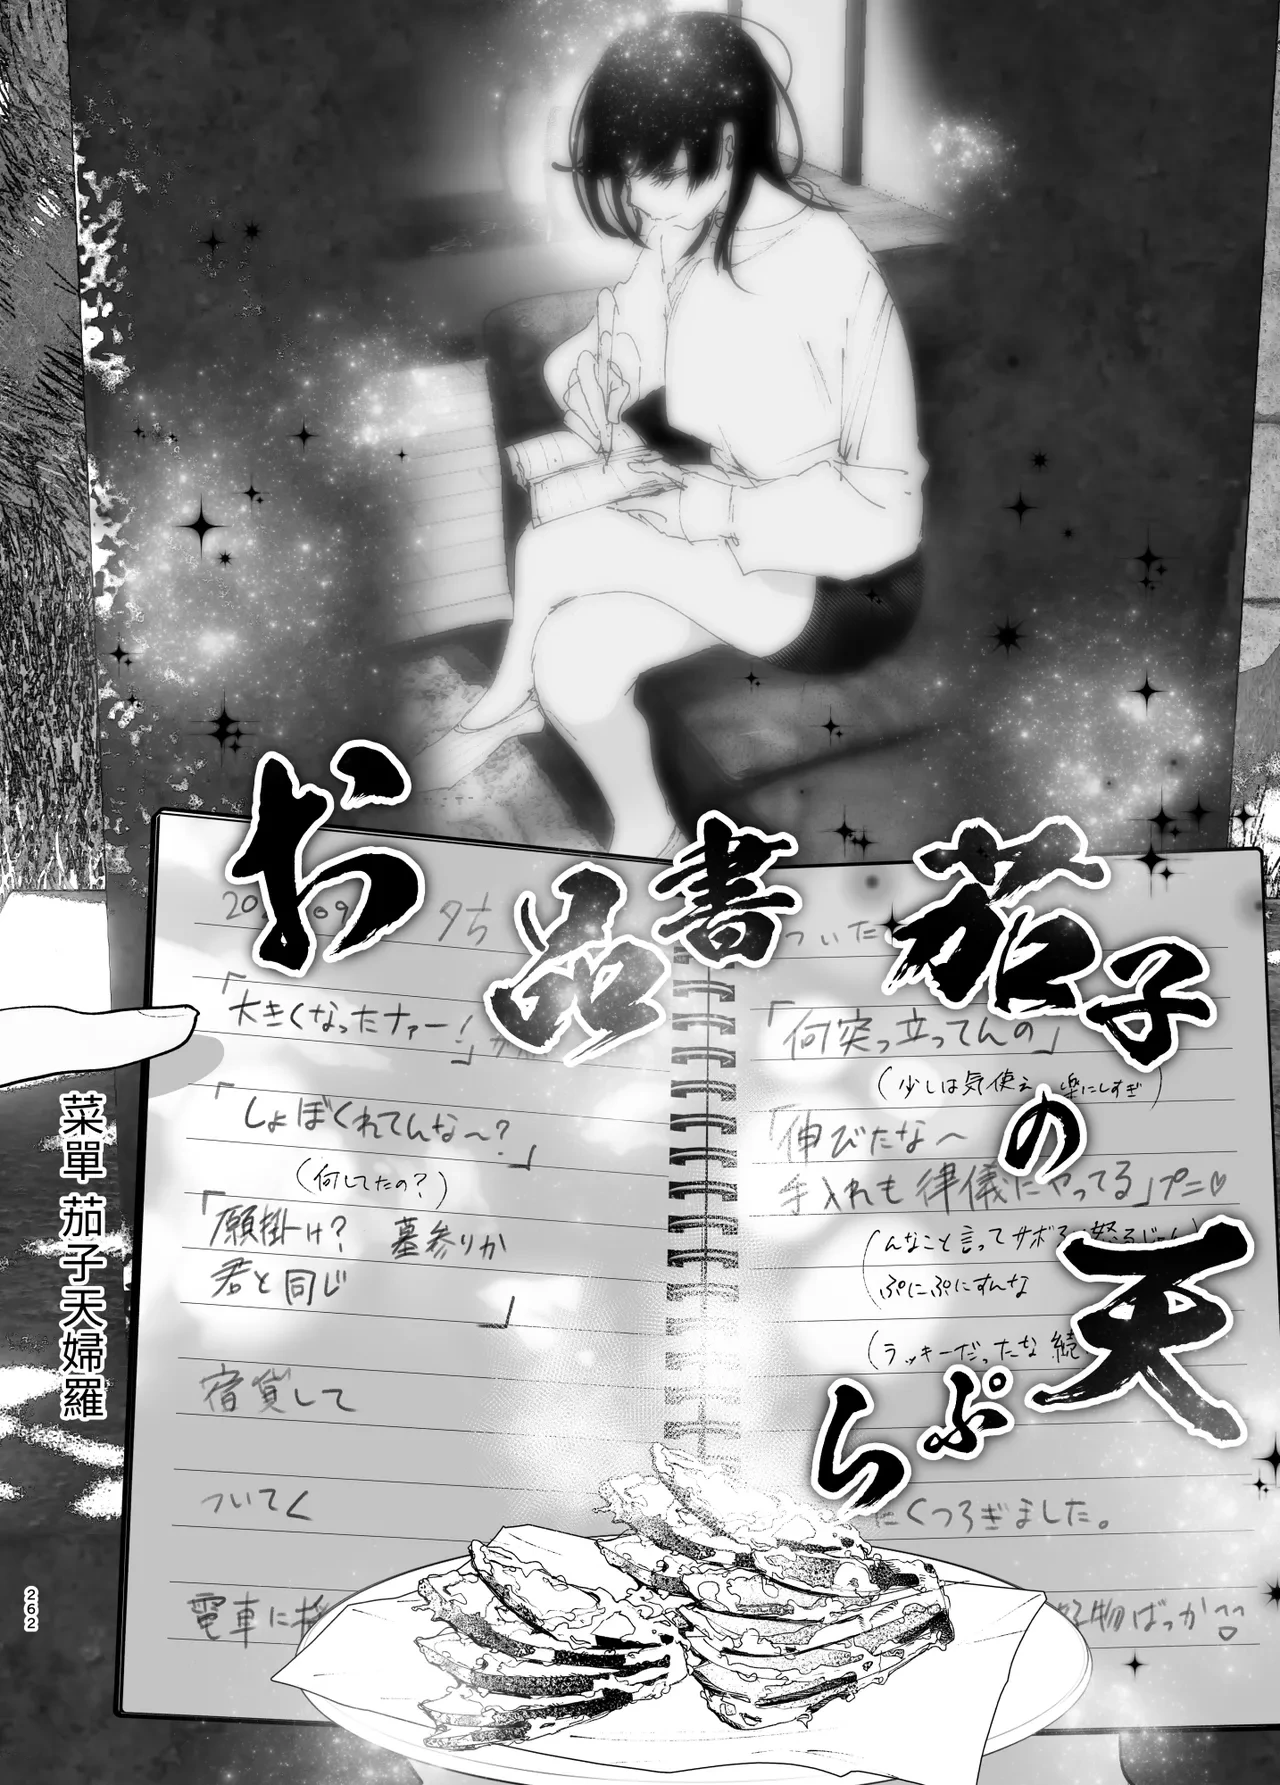 お品書
茄子の
天ぷら
菜單 茄子天婦羅
夕方
「大きくなったナァー!」
「しょぼくれてんな〜?」
(何してたの?)
「願掛け? 墓参りか
君と同じ
」
宿貸して
ついてく
電車に
ついた
「何突っ立ってんの」
(少しは気使え 楽にしすぎ)
「伸びたな〜
手入れも律儀にやってる」プニ♡
んなこと言ってサボる 怒るじゃん
ぷにぷにすんな
(ラッキーだったな 続
にくつろぎました。
好物ばっか
262